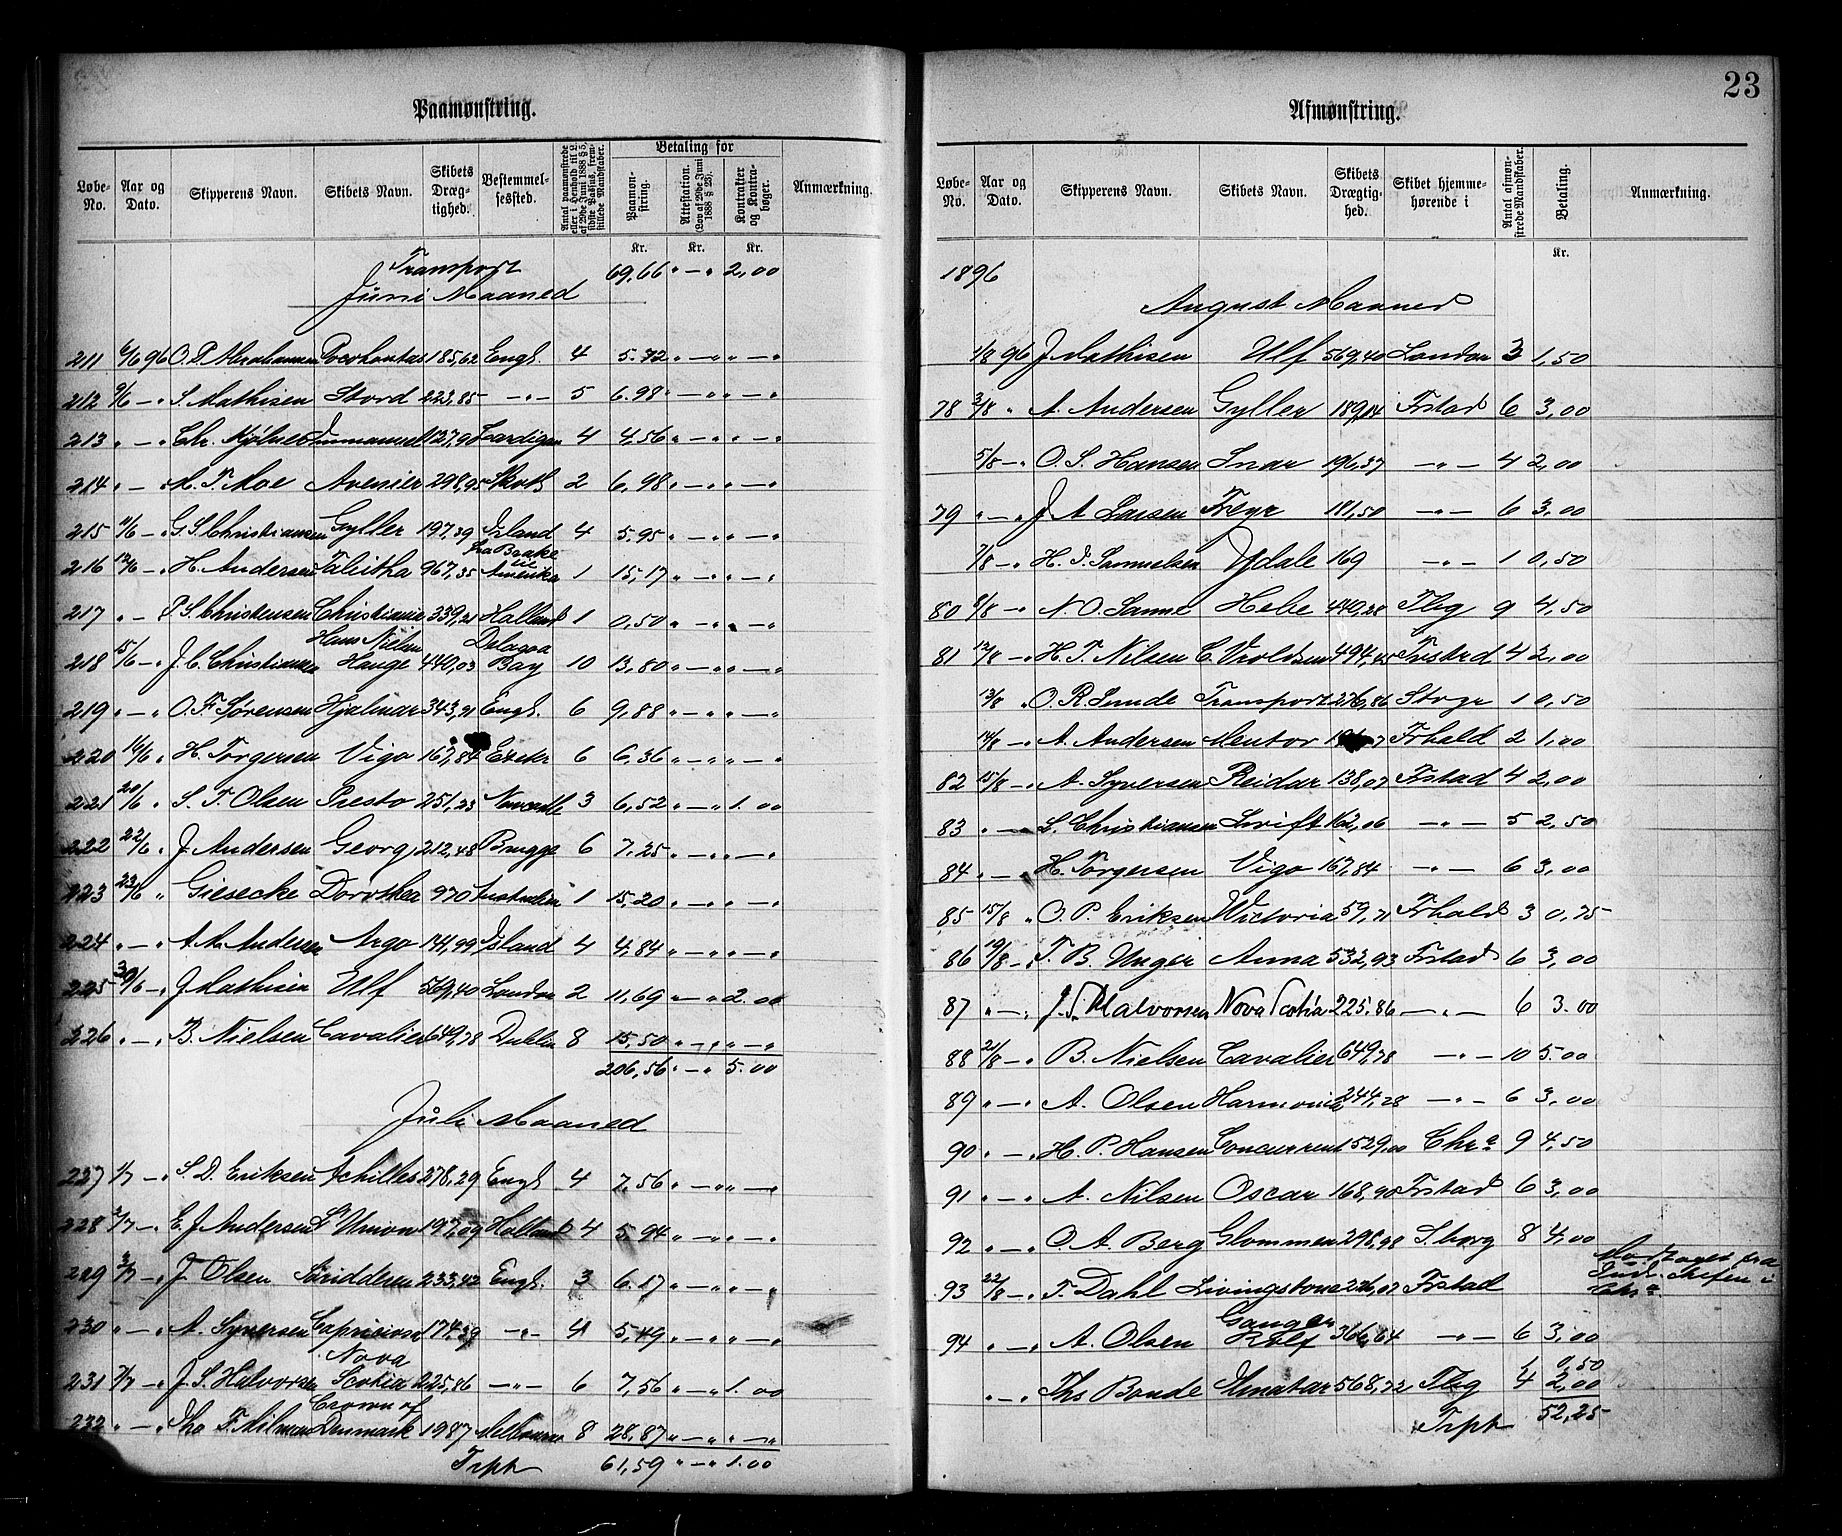 Paamønstring.
Løbe-No. Aar og Dato. Skipperens Navn. Skibets Navn. Skibets Dræg-tighed. Bestemmel-sessted. Antal paamønstrede eller i Henhold til L. af 29de Juni 1888 § 5, sidste Passus, frem-stillede Mandskaber. Betaling for Paamøn-string. Attestation. (Lov af 29de Juni 1888 § 23). Kontrakter og Kontra-bøger. Anmærkning.
Kr. Kr. Kr.
Transport 69,66 " — " 2,00
Juni Maaned
211 6/6 96 O. P. Abrahamsen Pocohontas 185,62 Engl. 4 5.72 " — " " — "
212 9/6 — " S. Mathisen Stord 223,85 — " — 5 6.98 " — " " — "
213 " — " Chr. Immanuel 127,90 Cardigan 4 4,56 " — " " — "
214 " — " M. T. Moe Avenier 298,95 Skotl. 2 6,98 " — " " — "
215 11/6 — " G. S. Christiansen Gyller 197,39 Island 4 5.95 " — " " — "
216 12/6 — " H. Andersen Talitha 967,35 fra Brake til Amerika 1 15,17 " — " " — "
217 " — " P. S. Christensen Christiania 339,21 Holland 1 0,50 " — " " — "
218 15/6 — " J. C. Christiansen Hans Nielsen Hauge 440,03 Delagoa Bay 10 13,80 " — " " — "
219 " — " O. F. Sørensen Hjalmar 343,91 Engl. 6 9,88 " — " " — "
220 16/6 " H. Torgersen Vigo 167,84 Exeter 6 6,36 " — " " — "
221 20/6 " S. T. Olsen Presto 251,23 Newcastle 3 6,52 " — " 1.00
222 22/6 " J. Andersen Georg 212,48 Brugge 6 7,25 " — " " — "
223 23/6 " Giesecke Dorothea 970 Australien 1 15,20 " — " " — "
224 " — " A. M. Andersen Argo 141,99 Island 4 4,84 " — " " — "
225 30/6 — " J. Mathisen Ulf 569,40 London 2 11,69 " — " 2.00
226 " — " B. Nielsen Cavalier 649,78 Dublin 8 15,50 " — " " — "
206,56 " — " 5.00
Juli Maaned
227 1/7 — " S. D. Eriksen Achilles 278,29 Engl 4 7,56 " — " " — "
228 2/7 — " E. J. Andersen L' Union 197,09 Holland 4 5.94 " — " " — "
229 3/7 — " J. Olsen 233,42 Engl. 3 6.17 " — " " — "
230 " — " A. Syversen Capricieuse 174,39 — " — 4 5,49 " — " " — "
231 7/7 — " J. S. Halvorsen Nova Scotia 225,86 — " — 6 7,56 " — " 1.00
232 " — " Crown of Denmark 1987 Melbourne 8 28,87 " — " " — "
Trpt 61,59 " — " 1.00
23
Afmønstring.
Løbe-No. Aar og Dato. Skipperens Navn. Skibets Navn. Skibets Drægtig-hed. Skibet hjemme-hørende i Antal afmøn-strede Mandskaber. Betaling. Anmærkning.
Kr.
1896
August Maaned
1/8 96 J. Mathisen Ulf 569,40 London 3 1,50
78 3/8 " A. Andersen Gyller 189,14 Frstad 6 3,00
5/8 — " O. S. Hansen Snar 196,37 — " — 4 2,00
79 " — " J. A. Larsen Freyr 181,50 — " — 6 3,00
7/8 — " H. J. Samuelsen Ydale 169 — " — 1 0,50
80 8/8 — " N. O. Sanne Hebe 440,28 Tbg 9 4,50
81 12/8 — " H. T. Nilsen C. Vroldsen 494,45 Frstad 4 2,00
13/8 " O. R. Lunde Transport 276,86 1 0,50
14/8 — " A. Andersen Mentor Frhald 2 1,00
82 15/8 — " A. Syversen Reidar 138,07 Frstad 4 2,00
83 " — " L. Christiansen Svift 162,06 — " — 5 2,50
84 " — " H. Torgersen Vigo 167,84 — " — 6 3,00
85 15/8 " O. P. Eriksen Victoria 59,71 Frhald 3 0,75
86 19/8 — " T. B. Unger Anna 532,93 Frstad 6 3,00
87 " — " J. S. Halvorsen Nova Scotia 225,86 — " — 6 3.00
88 21/8 — " B. Nielsen Cavalier 649,78 — " — 10 5.00
89 " — " A. Olsen Harmonia 244,28 — " — 6 3,00
90 " — " H. P. Hansen Concurrent 529,00 Chr.a 9 4,50
91 " — " A. Nilsen Oscar 168,90 Frstad 6 3,00
92 " — " O. A. Berg Glommen 298,98 S.borg 8 4,00
93 22/8 — " T. Dahl Livingstone 226,07 Frstad
94 " — " A. Olsen Ganger Rolf 366,64 — " — 6 3,00
" — " Ths Bonde 568,72 Tbg 4 0,50 2,00
Trpt 52,25